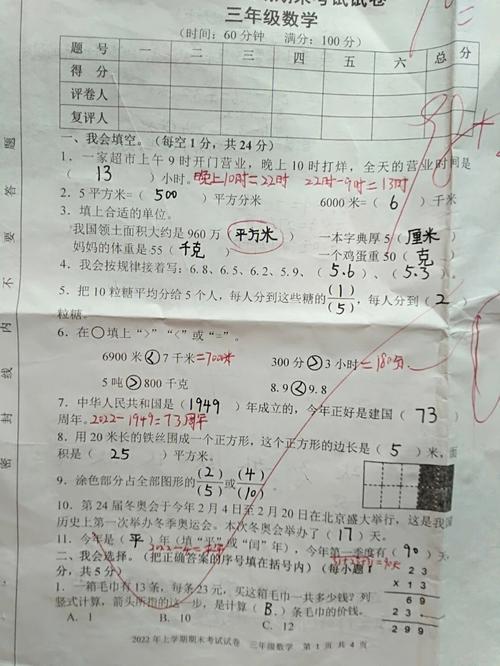 期末考试试卷
三年级数学
(时间：60分钟 满分：100分)
题号 一 二 三 四 五 六 总分
得分
评卷人
复评人
一、我会填空。(每空1分，共24分)
1. 一家超市上午9时开门营业，晚上10时打烊，全天的营业时间是
(13)小时。晚上10时=22时 22时-9时=13时
2. 5平方米=(500)平方分米 6000米=(6)千米
3. 填上合适的单位。
我国领土面积大约是960万(平方千米) 一本字典厚5(厘米)
妈妈的体重是55(千克) 一个鸡蛋重50(克)
4. 我会按规律接着写：6.8、6.5、6.2、5.9、(5.6)、(5.3)。
5. 把10粒糖平均分给5个人，每人分到这些糖的(1)/(5)，每人分到(2)
粒糖。
6. 在○填上“>”“<”或“=”。
6900米<7千米=7000米 300分>3小时=180分
5吨>800千克 8.9<9.8
7. 中华人民共和国是(1949)年成立的，今年正好是建国(73)
周年。2022-1949=73周年
8. 用20米长的铁丝围成一个正方形，这个正方形的边长是(5)米，面
积是(25)平方米。
9. 涂色部分占全部图形的(2)/(5)或(4)/(10)。
10. 第24届冬奥会于今年2月4日至2月20日在北京盛大举行，这是我国
历史上第一次举办冬季奥运会。本次冬奥会举办了(17)天。
11. 今年是(平)年(填“平”或“闰”年)，今年第一季度有(90)天。
二、我会选择。(把正确答案的序号填在括号内)(每小题1
分，共5分)
1. 一箱毛巾有13条，每条23元，买这箱毛巾一共多少钱？列
竖式计算，箭头所指的这一步，是计算(B.)条毛巾的价钱。
A. 1 B. 10 C. 12
23
×13
69
23
299
2022年上学期期末考试试卷 三年级数学 第1页 共4页
密封线内不要答题